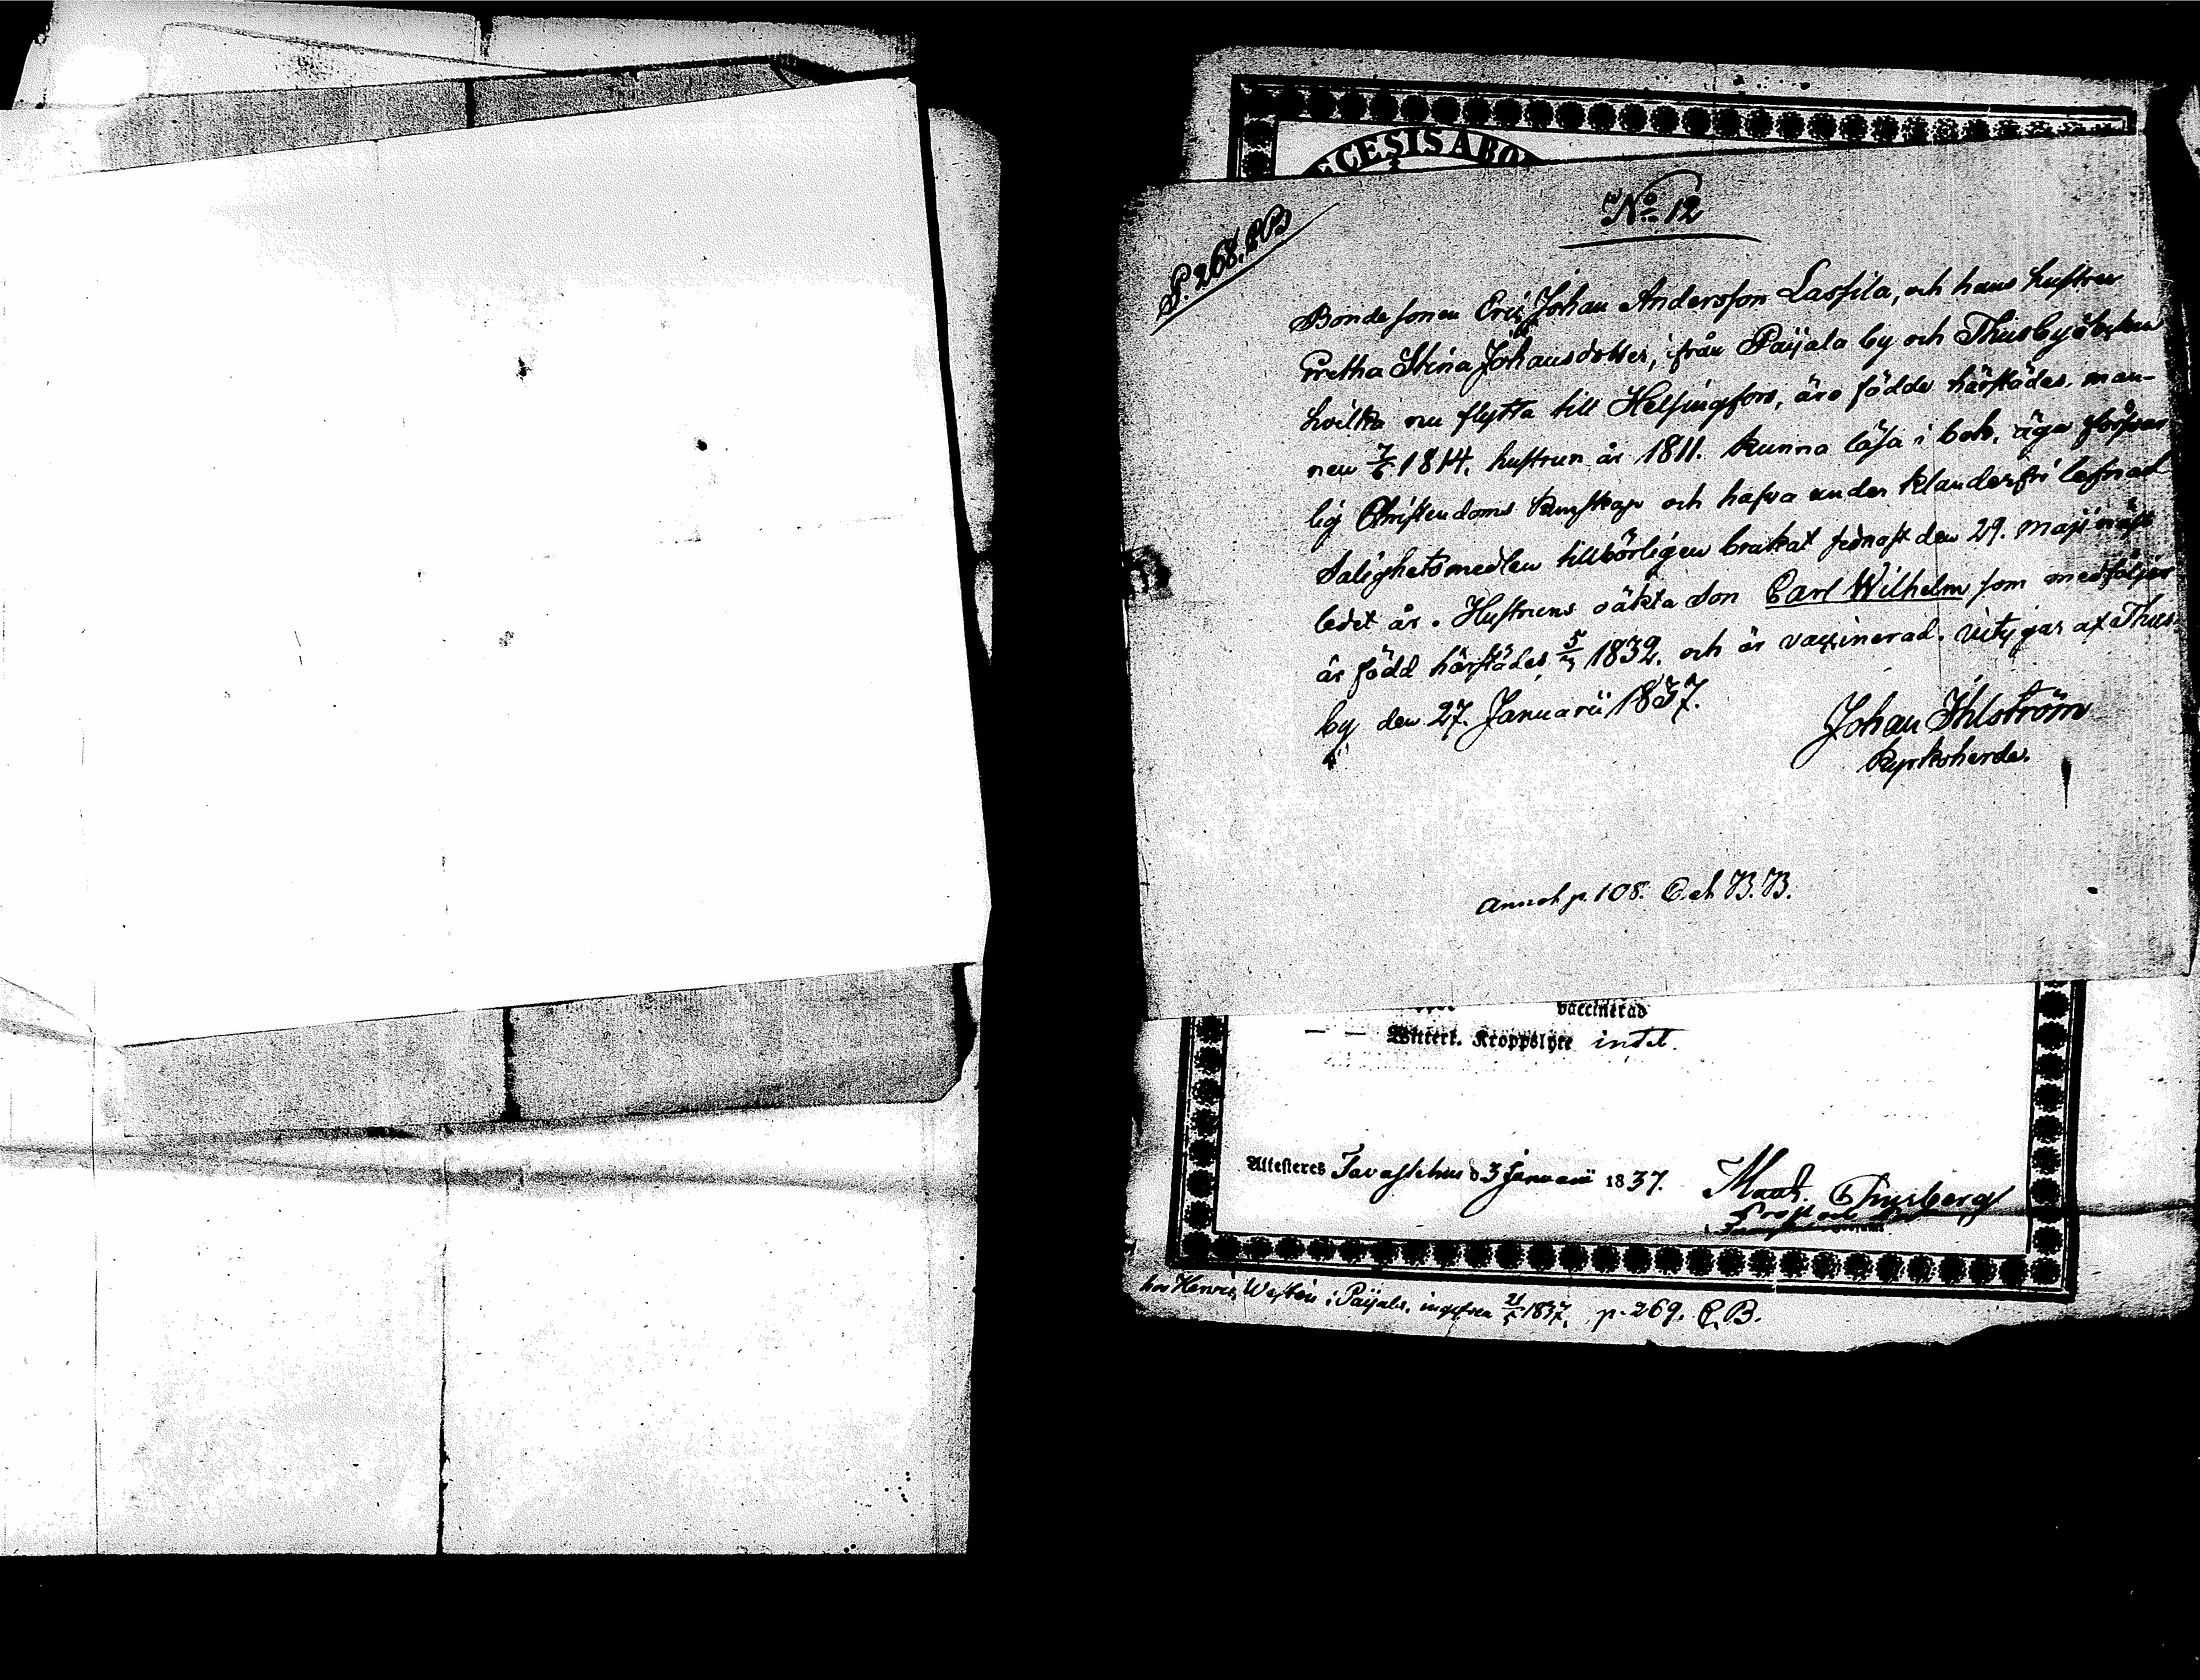 ECESIS ABO
No 12
P. 268. CB
Bondesonen Eric Johan Andersson Lassila, och hans hustru
Gretha Stina Johansdotter, från Paijala by och Thusby
hvilka nu flytta till Helsingfors, äro födde härstädes, man-
nen 7/6 1814. hustrun år 1811. kunna läsa i bok, äga försvar
lig Christendoms kunskap och hafva under klanderfri lefnad
Salighetsmedlen tillbörligen brukat sednast den 29. Maji näst
ledet år. Hustruns oäkta son Carl Wilhelm som medföljer
är född härstädes 5/3 1832. och är vaccinerad. vitsgar af Thus
by den 27. Januarii 1837.
Johan Ihlström
Kyrkoherde.
Annot p. 108. C. et B.B.
vaccinerad
— — Kroppslyte intet.
Attesteres Tavastehus d 3 Januarii 1837.
hos Henric Westén i Paijala. 21/5 1837. p. 269. C.B.